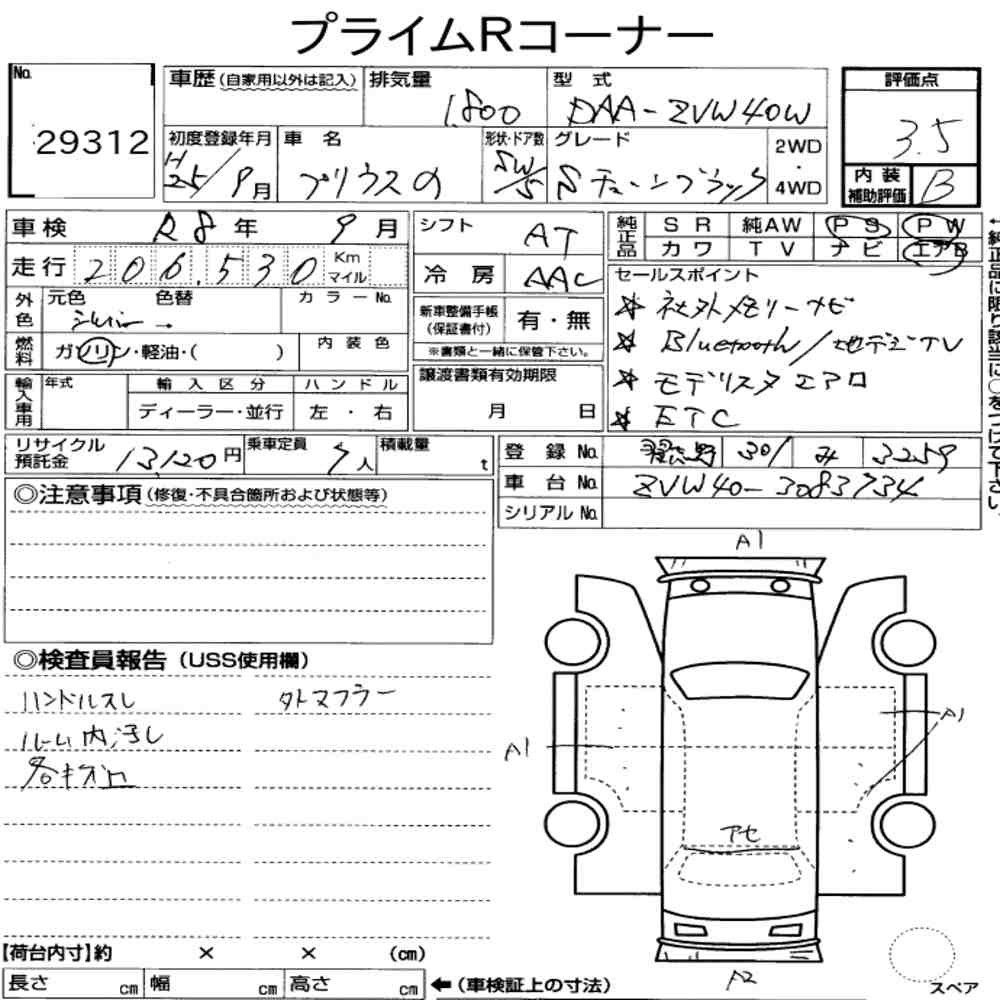 プライムRコーナー
No. 29312
車歴 (自家用以外は記入)
排気量 1,800
型式 DAA-ZVW40W
評価点 3.5
初度登録年月 H25/9月
車名 プリウスα
形状・ドア数 SW/5
グレード Sチューンブラック
2WD・4WD
内装補助評価 B
車検 R8年 9月
シフト AT
純正品 SR 純AW PS PW
カワ TV ナビ エアB
走行 206,530 Km マイル
冷房 AAC
外色 元色 シルバー 色替 → カラーNo.
新車整備手帳(保証書付) 有・無
※書類と一緒に保管下さい。
燃料 ガソリン・軽油・( )
内装色
セールスポイント
☆ 社外メモリーナビ
☆ Bluetooth/地デジTV
☆ モデリスタエアロ
☆ ETC
←純正品に限り該当に○をつけて下さい。
輸入車用 年式 輸入区分 ハンドル
ディーラー・並行 左・右
譲渡書類有効期限
月 日
リサイクル預託金 13120円
乗車定員 7人
積載量 t
登録No. 習志野 301 み 3259
車台No. ZVW40-3083734
シリアルNo.
◎注意事項(修復・不具合箇所および状態等)
◎検査員報告(USS使用欄)
ハンドルスレ 外マフラー
ルーム内汚し
各キズ凹
A1
A1
A1
アセ
A2
スペア
【荷台内寸】約 × × (cm)
長さ cm 幅 cm 高さ cm ←(車検証上の寸法)